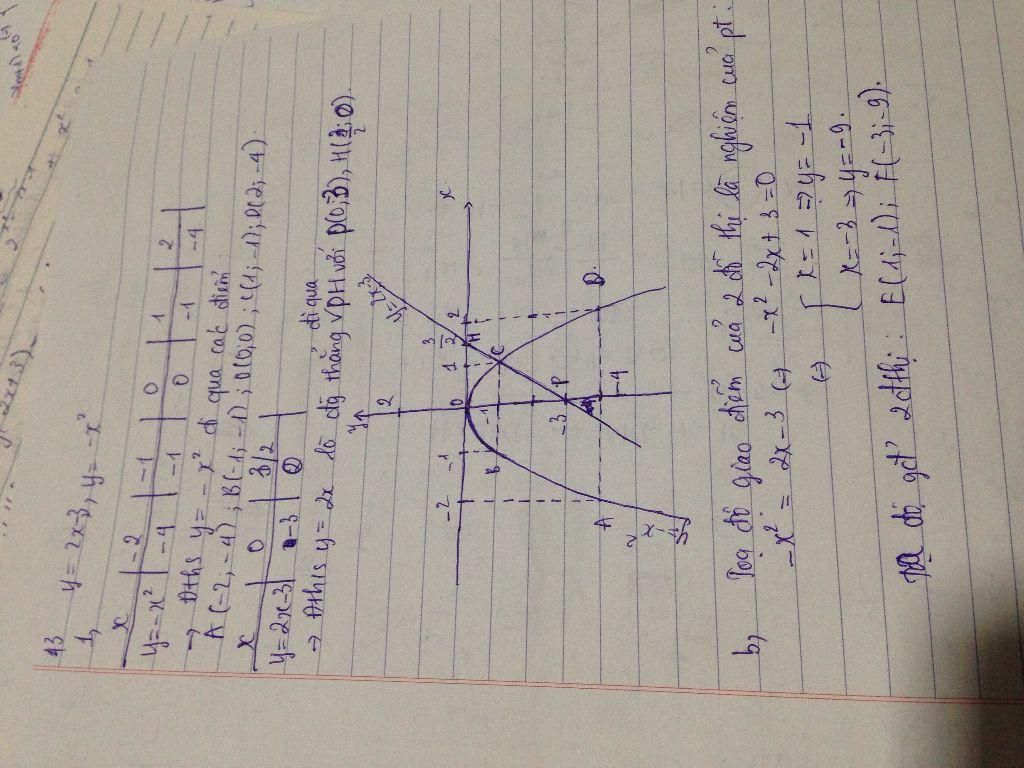 43
1, y = 2x-3, y = -x²
x | -2 | -1 | 0 | 1 | 2
y=-x² | -4 | -1 | 0 | -1 | -4
→ Đths y = -x² đi qua các điểm:
A(-2,-4); B(-1;-1); O(0;0); C(1;-1); D(2;-4)
x | 0 | 3/2
y=2x-3 | -3 | 0
→ Đths y = 2x là đg thẳng đi qua PH với P(0;-3), H(3/2;0).
y
x
2
-2
-1
0
1
3/2
2
H
y=2x-3
B
-1
C
-3
P
-4
A
D
y=-x²
b, Toạ độ giao điểm của 2 đồ thị là nghiệm của pt:
-x² = 2x-3 (=) -x² -2x+3=0
(=) [ x = 1 => y = -1
x = -3 => y = -9.
Toạ độ gđ 2 đthị: E(1;-1); F(-3;-9).